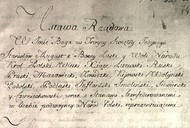 Ustawa Rządowa
W Imię Boga w Troycy Swiętey Jedynego
Stanisław August z Bożey Łaski y Woli Narodu
Król Polski, Wielki Xiąże Litewski, Ruski,
Pruski, Mazowiecki, Żmudzki, Kijowski, Wołyński,
Podolski, Podlaski, Inflantski, Smoleński, Siewierski
y Czerniechowski, wraz z Stanami Skonfederowanemi
w liczbie podwoyney Naród Polski reprezentuiącemi